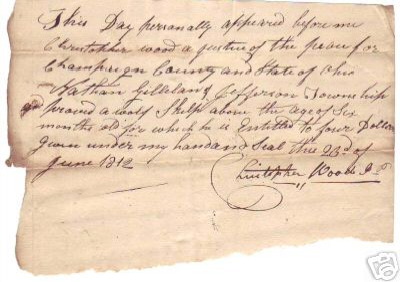 This Day personally appeared before me
Christopher wood a justice of the peace for
Champaign County and State of Ohio
Nathan Gilleland Jefferson Township
and proved a wolf Skelp above the age of Six
months old for which he is Entitled to four Dollars
given under my hand and Seal this 23d of
June 1812
Christopher Wood J P